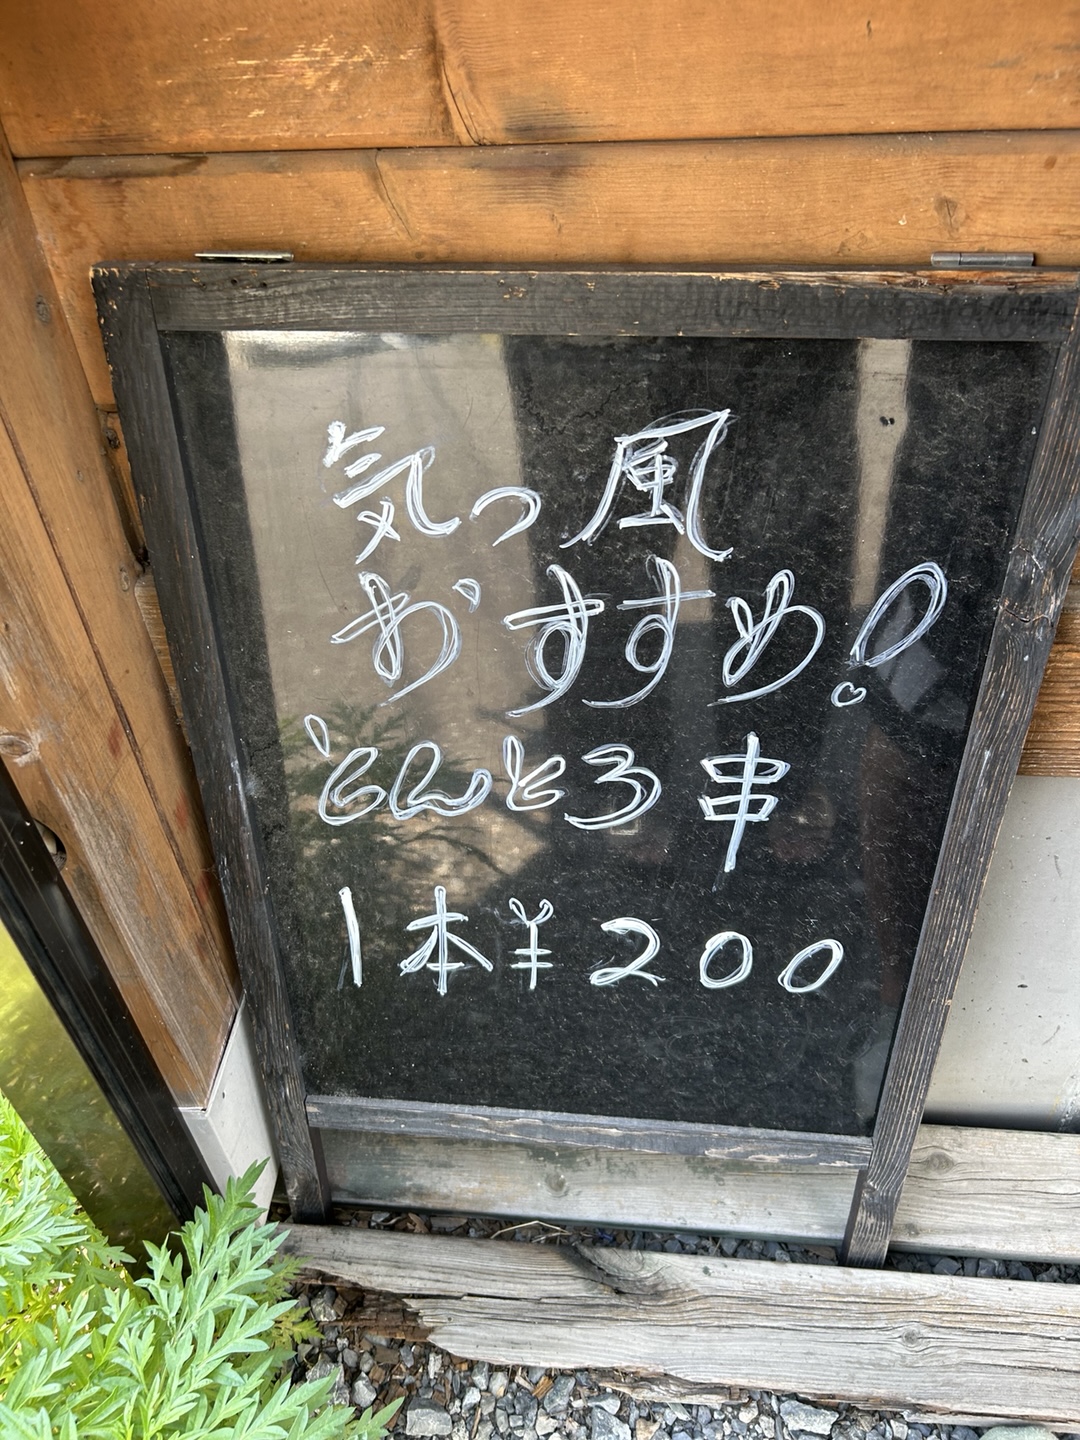 気っ風
おすすめ!
とんとろ串
1本¥200